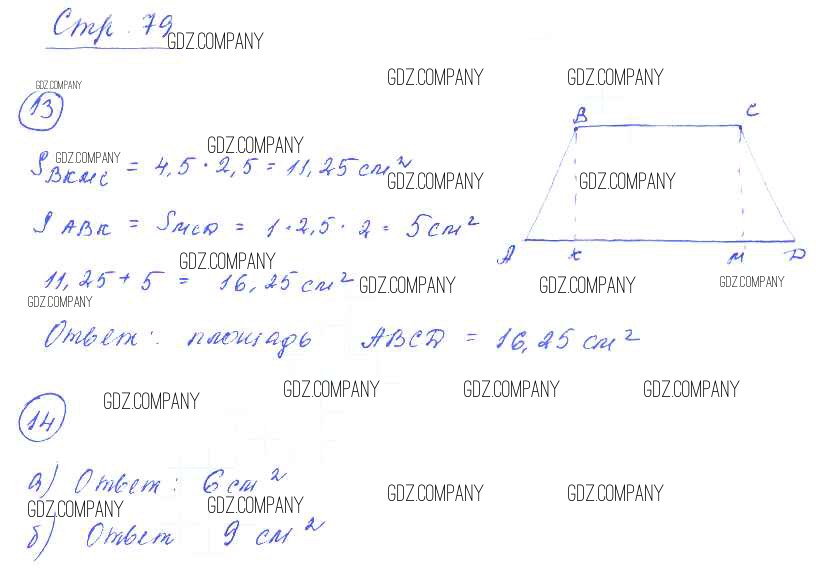 Стр. 79
GDZ.COMPANY
GDZ.COMPANY GDZ.COMPANY
GDZ.COMPANY
13
B C
GDZ.COMPANY
GDZ.COMPANY
S BKMC = 4,5 · 2,5 = 11,25 см²
GDZ.COMPANY GDZ.COMPANY
S ABK = S MCD = 1 · 2,5 · 2 = 5 см²
A K M D
GDZ.COMPANY
11,25 + 5 = 16,25 см²
GDZ.COMPANY GDZ.COMPANY GDZ.COMPANY
GDZ.COMPANY
Ответ: площадь ABCD = 16,25 см²
GDZ.COMPANY GDZ.COMPANY GDZ.COMPANY GDZ.COMPANY
14
а) Ответ: 6 см²
GDZ.COMPANY GDZ.COMPANY GDZ.COMPANY GDZ.COMPANY
б) Ответ 9 см²